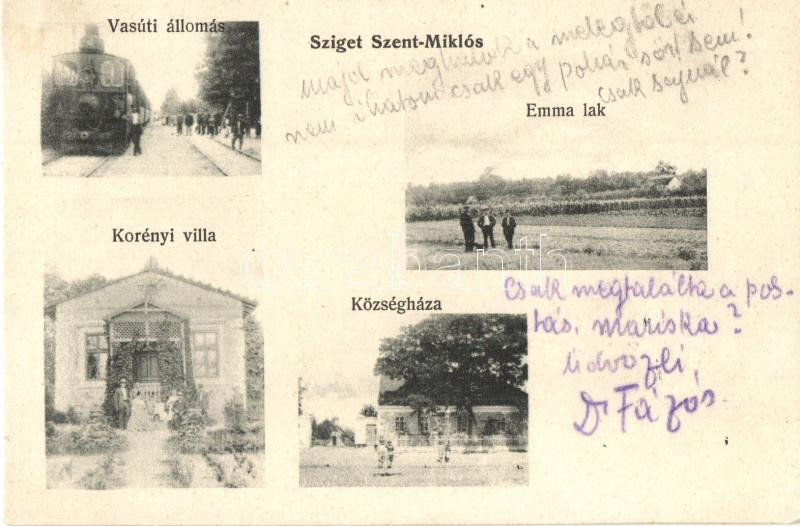 Vasúti állomás
Sziget Szent-Miklós
majd meghalok a melegtől és
nem ihatom csak egy pohár sört sem!
csak sajnál?
Emma lak
Korényi villa
Községháza
Csak megtalálta a pos-
tás, mariska?
üdvözli
Dr Fázós